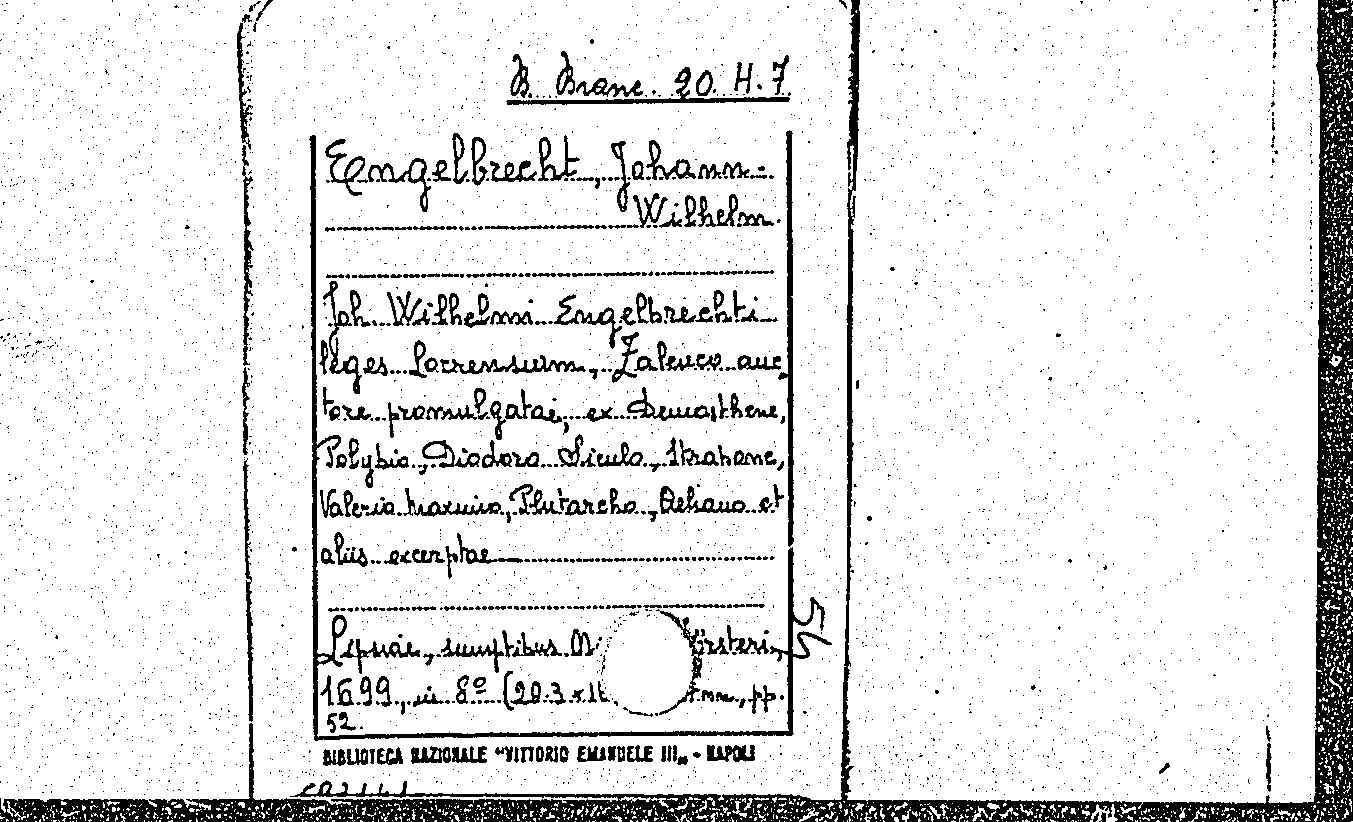 B. Branc. 20. H. 7
Engelbrecht, Johann-
Wilhelm.
Joh. Wilhelmi Engelbrechti
leges Locrensium, Zaleuco auc
tore promulgatai, ex Demosthene,
Polybio, Diodoro Siculo, Strabone,
Valerio Maximo, Plutarcho, Aeliano et
aliis excerptae
Lipsiae, sumptibus örsteri,
1699, in 8º (20.3 x 1 mm, pp.
52.
54
BIBLIOTECA NAZIONALE "VITTORIO EMANUELE III„ - NAPOLI